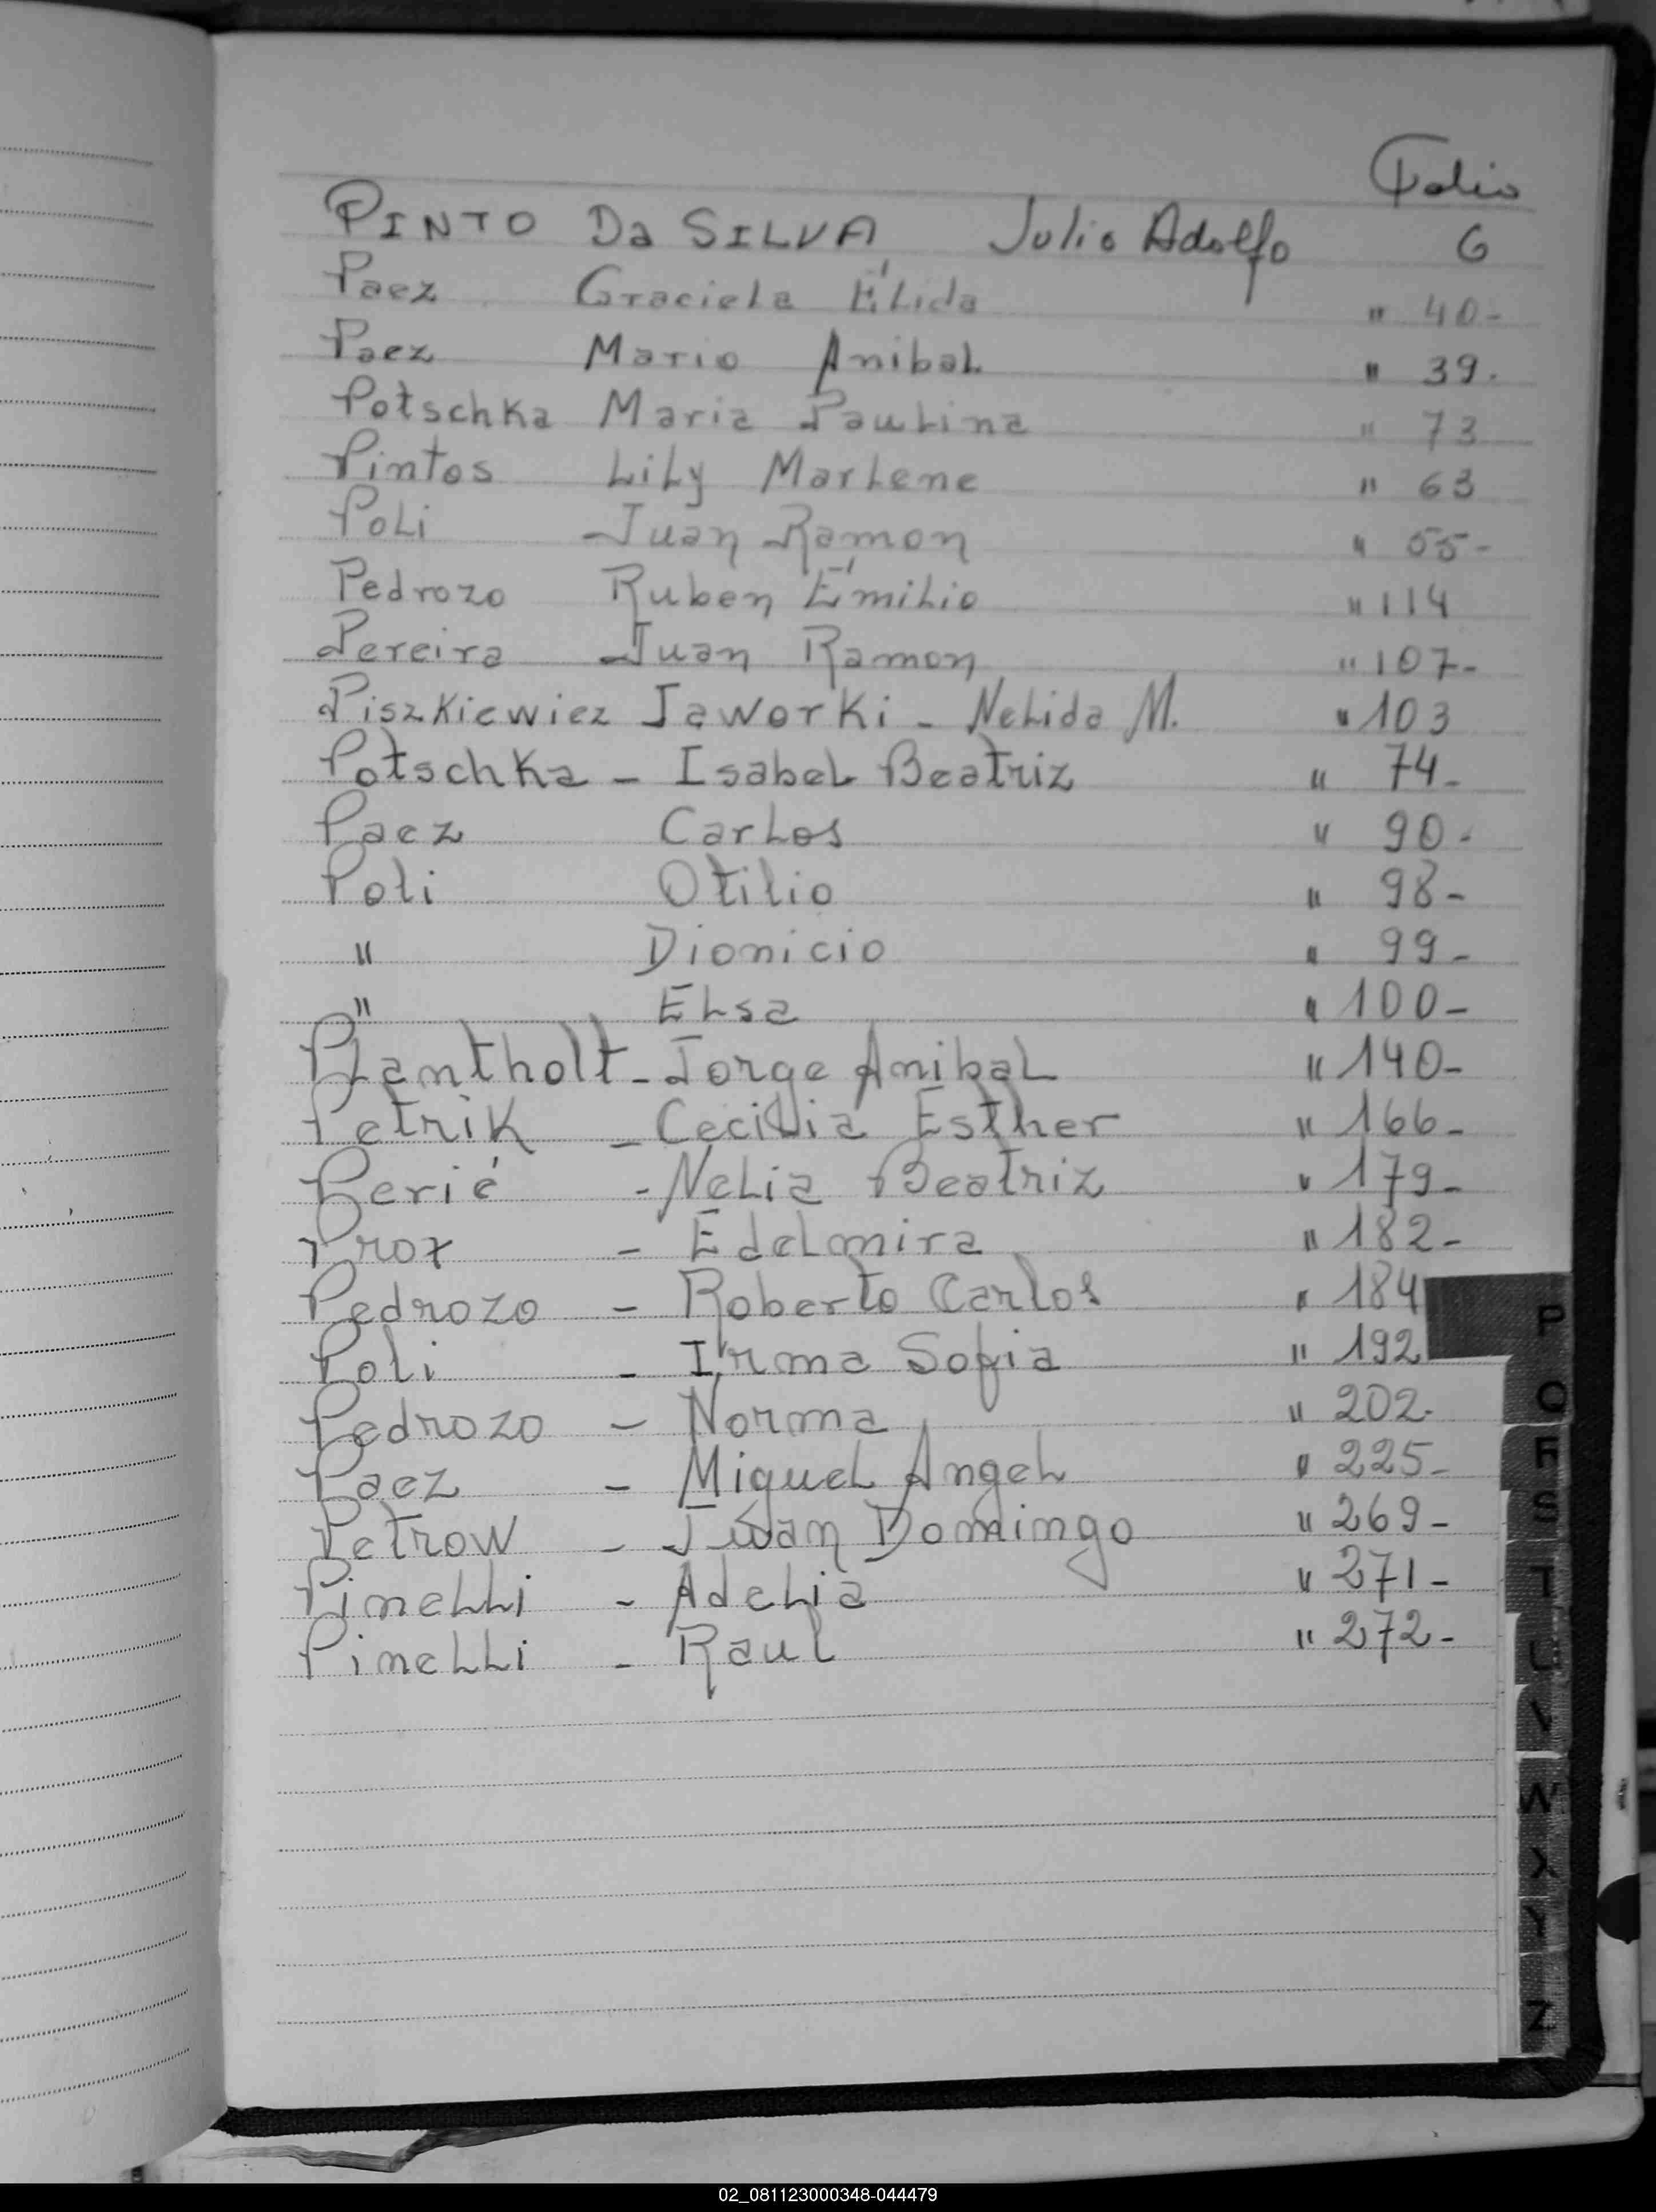 Folio
PINTO Da SILVA Julio Adolfo 6
Paez Graciela Élida " 40-
Paez Mario Anibal " 39.
Potschka Maria Paulina " 73
Pintos Lily Marlene " 63
Poli Juan Ramon " 55-
Pedrozo Ruben Emilio " 114
Pereira Juan Ramon " 107-
Piszkiewiez Jaworki - Nelida M. " 103
Potschka - Isabel Beatriz " 74-
Paez Carlos " 90-
Poli Otilio " 98-
" Dionicio " 99-
" Elsa " 100-
Plantholt - Jorge Anibal " 140-
Petrik - Cecilia Esther " 166-
Perié - Nelia Beatriz " 179-
Prox - Edelmira " 182-
Pedrozo - Roberto Carlos " 184
Poli - Irma Sofia " 192
Pedrozo - Norma " 202-
Paez - Miguel Angel " 225-
Petrow - Juan Domingo " 269-
Pinelli - Adelia " 271-
Pinelli - Raul " 272-
P
Q
R
S
T
U
V
W
X
Y
Z
02_081123000348-044479